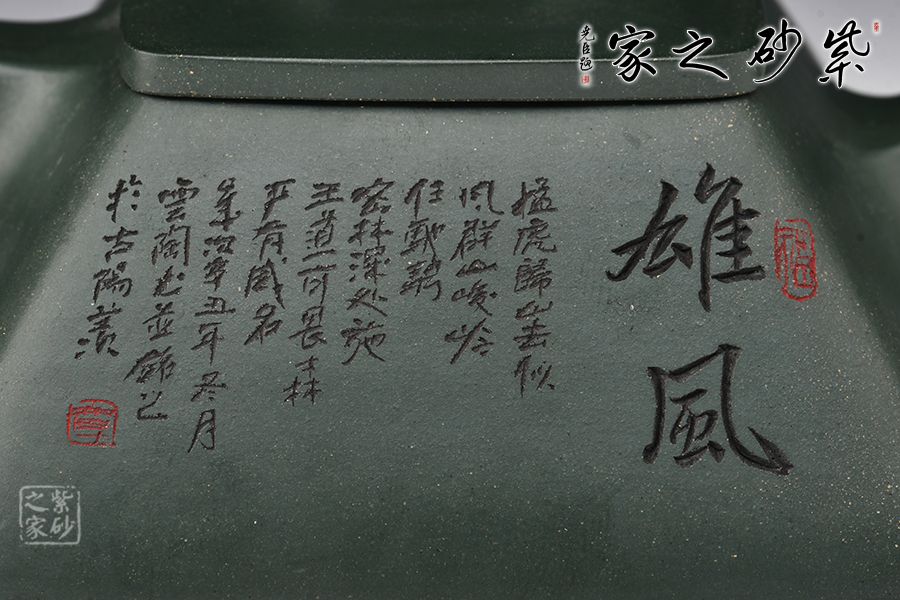 紫砂之家
堯臣題
雄風
猛虎歸山去似
风群山峻岭
任馳騁
密林深处施
王道可畏森
严有威名
歲次辛丑年冬月
雲陶並銘
於古陽羨
紫砂之家